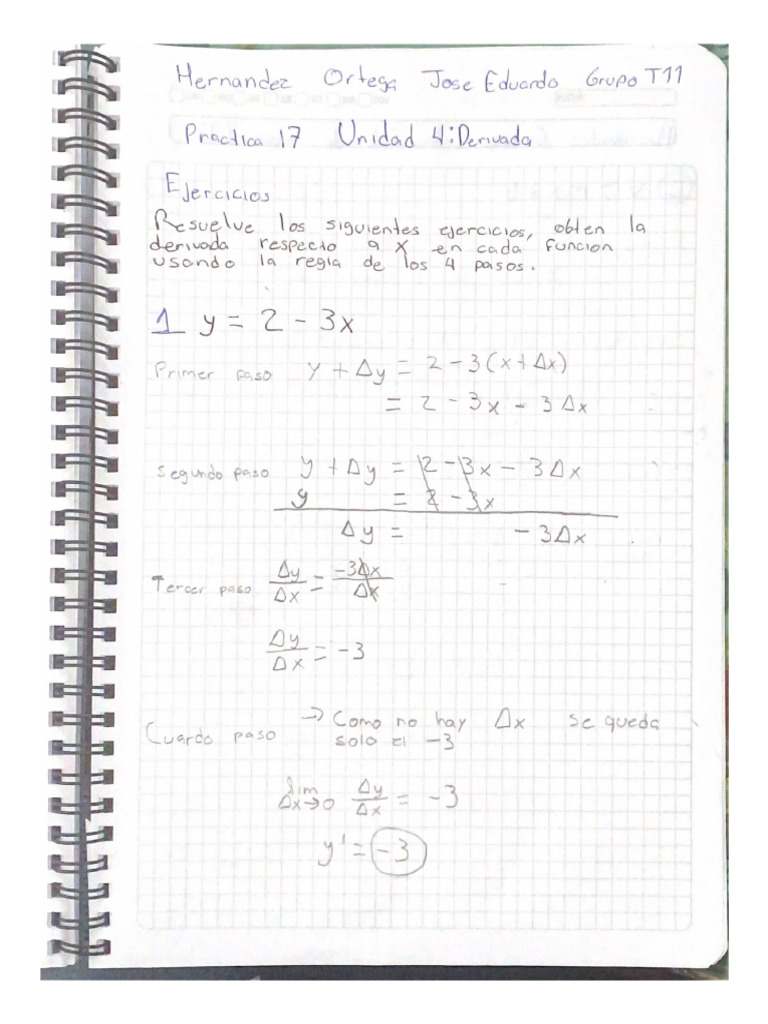 Hernandez Ortega Jose Eduardo Grupo T11
Práctica 17 Unidad 4: Derivada
Ejercicios
Resuelve los siguientes ejercicios, obten la
derivada respecto a x en cada funcion
usando la regla de los 4 pasos.
1 y = 2 - 3x
Primer paso y + Δy = 2 - 3(x + Δx)
= 2 - 3x - 3Δx
Segundo paso y + Δy = 2 - 3x - 3Δx
y = 2 - 3x
Δy = - 3Δx
Tercer paso Δy/Δx = -3Δx/Δx
Δy/Δx = -3
Cuardo paso → Como no hay Δx se queda
solo el -3
lim Δx→0 Δy/Δx = -3
y' = -3